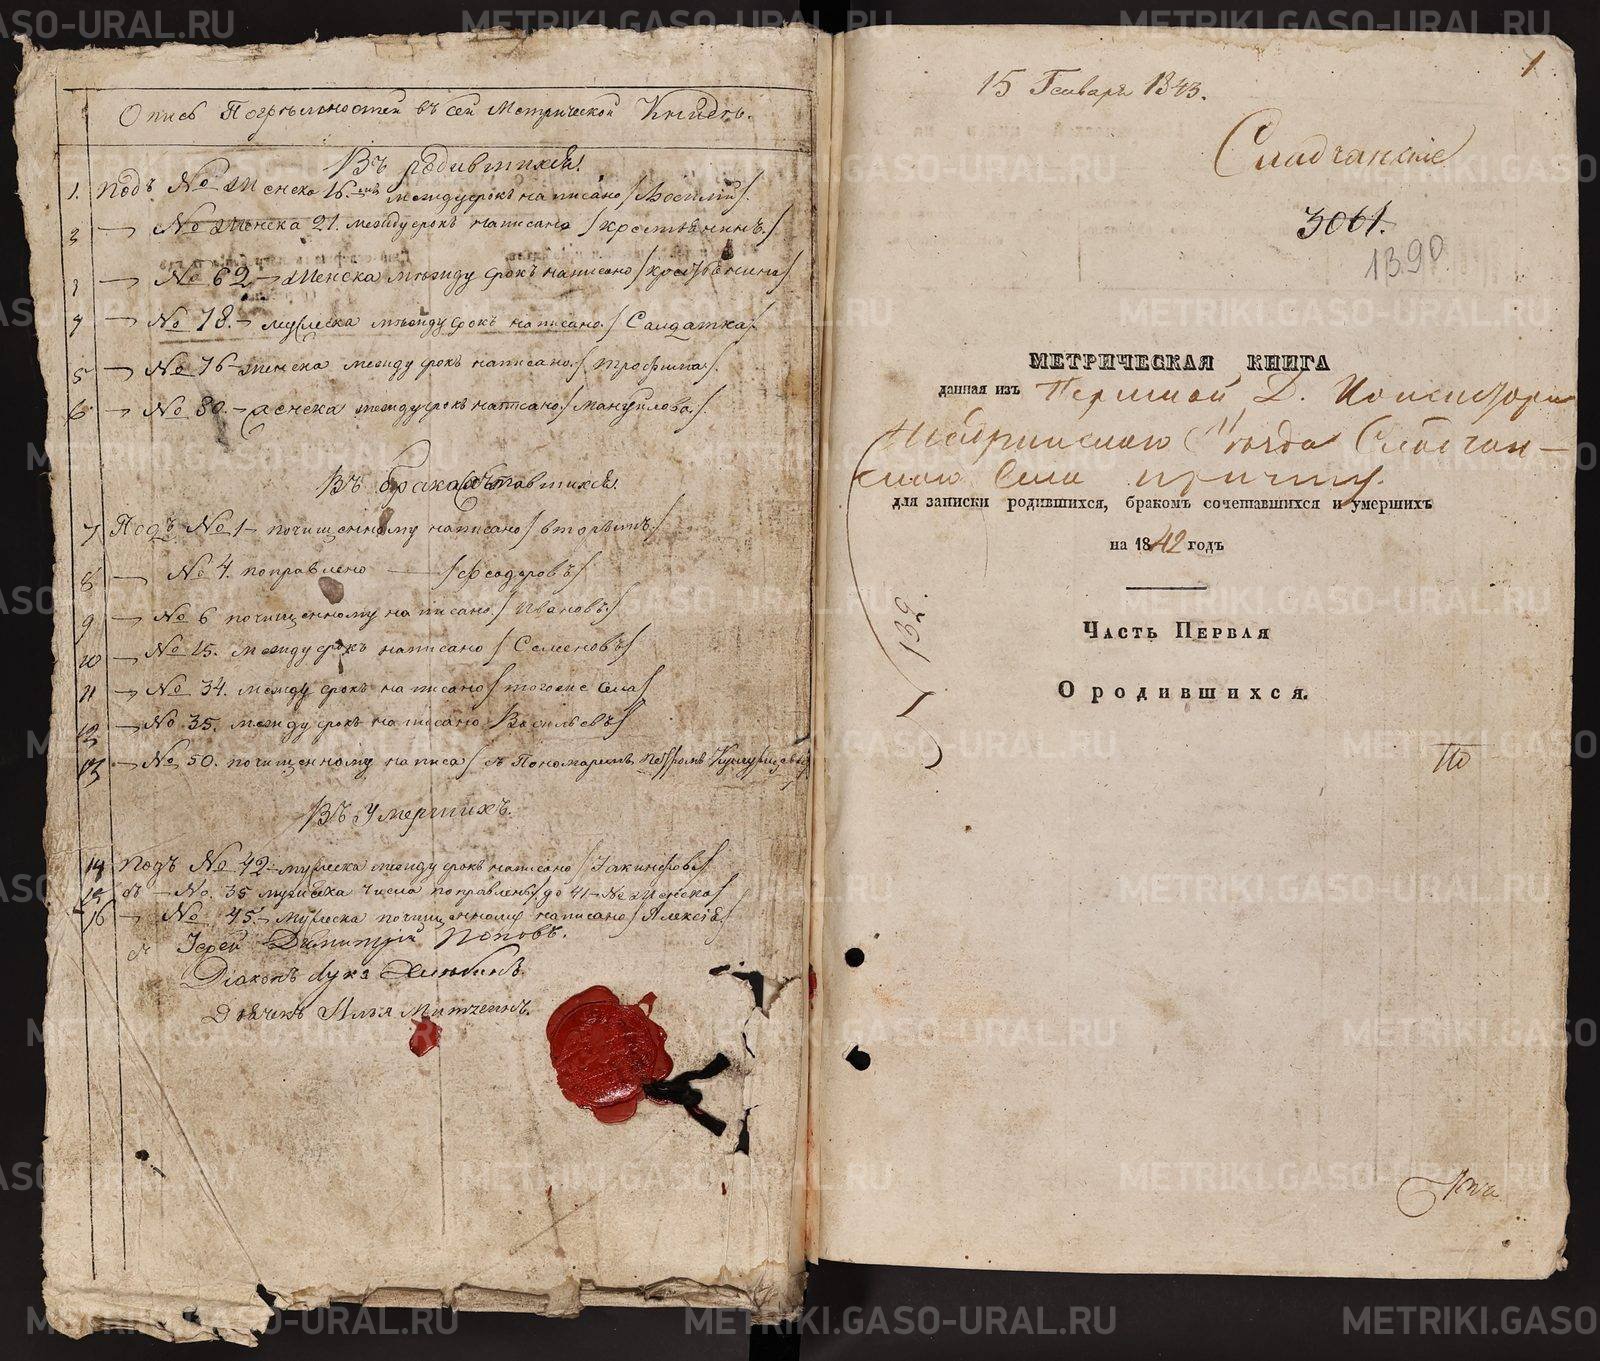 Опись Погрѣшностей въ сей Метрической Книгѣ.
Въ родившихся.
1. Подъ № Женска 16. между срокъ написано /Василій/.
2 — № Женска 21. между срокъ написано /крестьянинъ./
3 — № 62 — Женска между срокъ написано /крестьянина/
4 — № 78. — мужеска между срокъ написано. /Салдатка/.
5 — № 76 — женска между срокъ написано. /Трофима/.
6 — № 80. — женска между срокъ написано. /Мануилова./.
Въ бракосочетавшихся.
7 Подъ № 1 — почищенному написано /вторымъ./
8 — № 4. поправлено — /Феодоровъ/
9 — № 6 почищенному написано /Ивановъ./
10 — № 15. между срокъ написано /Семеновъ/
11 — № 34. между срокъ написано /тогоже села/
12 — № 35. между срокъ написано Васильевъ/
13 — № 50. почищенному написа /съ Пономаремъ Петромъ
Въ Умершихъ.
14 Подъ № 42 — мужеска между срокъ написано /Іакинфовъ/
15 съ — № 35 мужеска числа поправлены до 41 — № женска/
16 — № 45 — мужеска почищенному написано /Алексѣй/
Іерей Димитрій Поповъ.
Діаконъ Лука Хлѣбинъ.
Дьячекъ Илья
1
15 Генваря 1843.
Сладчанское
3061.
1390
МЕТРИЧЕСКАЯ КНИГА
данная изъ Пермской Д. Консисторіи
Шадринскаго Уѣзда Сладчан-
скаго Села причту.
для записки родившихся, бракомъ сочетавшихся и умершихъ
на 1842 годъ
132.
ЧАСТЬ ПЕРВАЯ
О родившихся.
По
METRIKI.GASO-URAL.RU